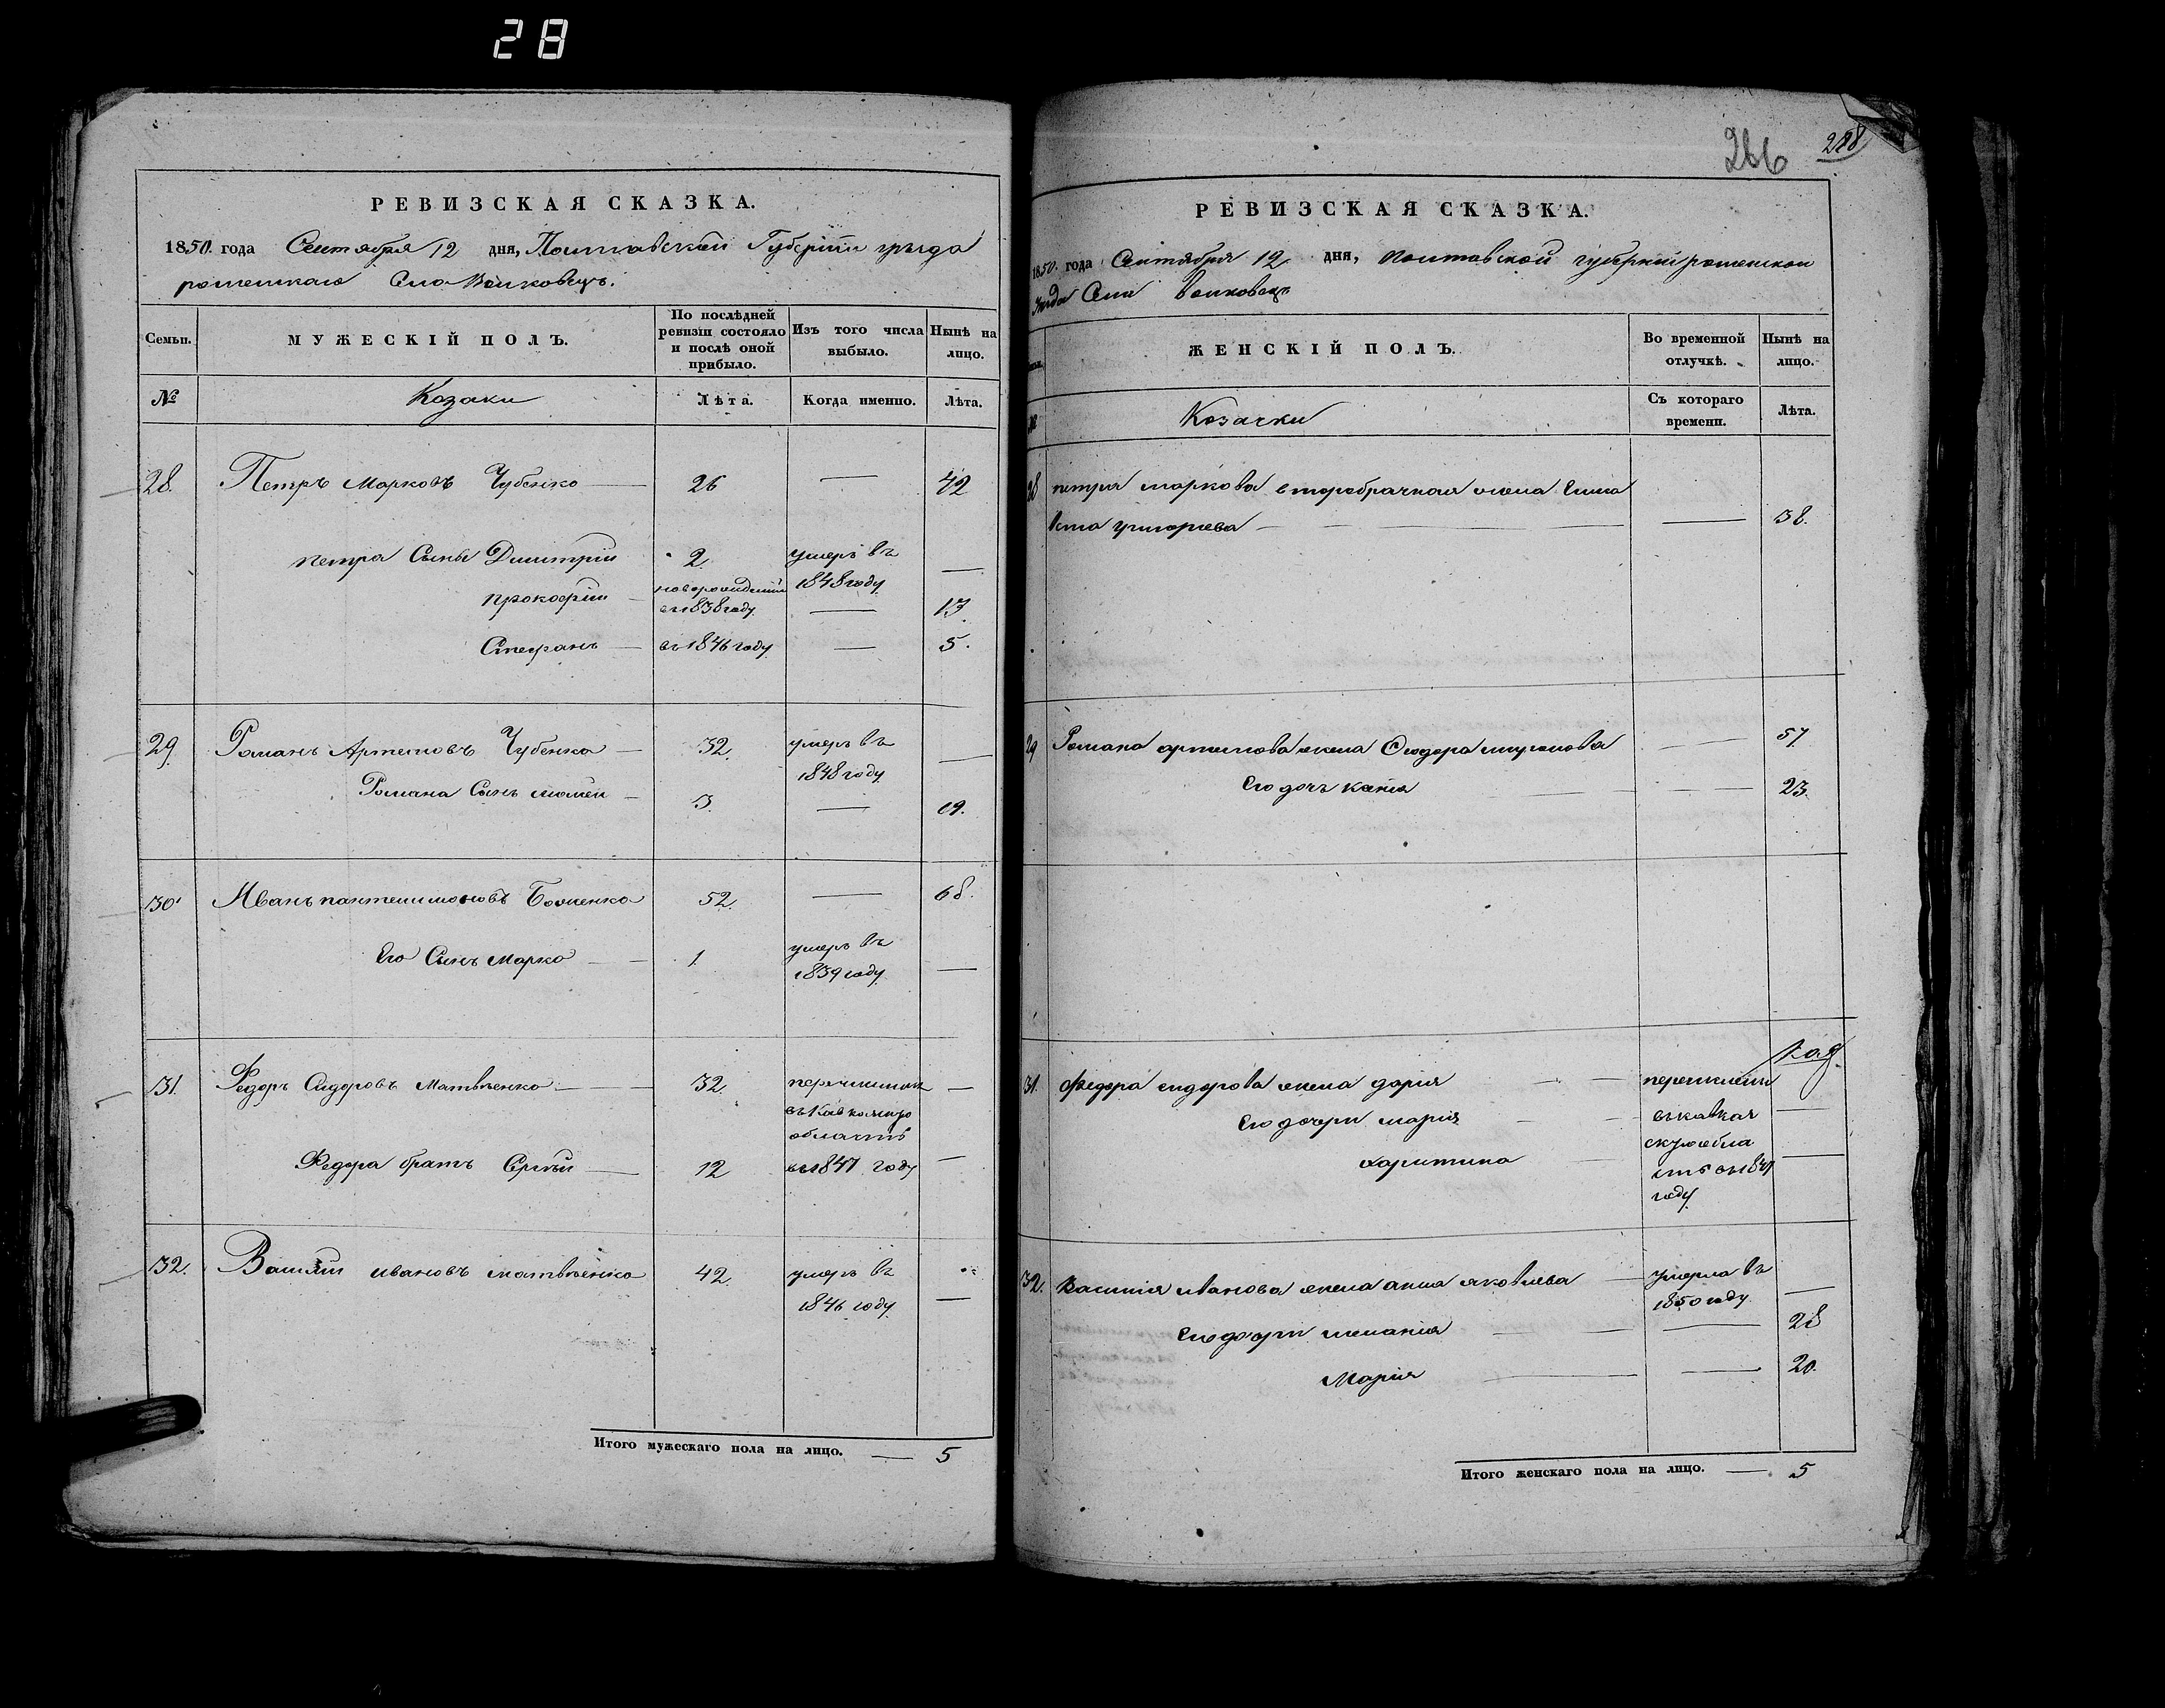 28
РЕВИЗСКАЯ СКАЗКА.
1850. года Сентября 12 дня, Полтавской Губерніи уезда
роменскаго Села Волковецъ.
Семьи.
МУЖЕСКІЙ ПОЛЪ.
По послѣдней
ревизіи состояло
и послѣ оной
прибыло.
Изъ того числа
выбыло.
Нынѣ на
лицо.
№
Козаки
Лѣта.
Когда именно.
Лѣта.
28. Петръ Марковъ Чубенко — 26 — 42
петра Сыны Димитрій 2. умеръ въ
1848 году —
прокофій — новорожденный
въ 1838 году — 13.
Стефанъ — въ 1846 году — 5.
29. Романъ Артемовъ Чубенко — 32. умеръ въ
1848 году —
Романа Сынъ — 3. — 19.
30. Иванъ пантелимоновъ 52. — 68.
Его Сынъ Марко — 1. умеръ въ
1839 году —
31. Федоръ Сидоровъ Матвѣенко — 32. перечислен —
въ Кавказкую
область
Федора братъ Сергѣй — 12 въ 1847 году —
32. Василій ивановъ матвѣенко 42. умеръ въ
1846 году —
Итого мужескаго пола на лицо. — 5
266 288
РЕВИЗСКАЯ СКАЗКА.
1850. года Сентября 12 дня, полтавской губерніи роменского
Уезда Села волковецъ
ЖЕНСКІЙ ПОЛЪ.
Во временной
отлучкѣ.
Нынѣ на
лицо.
№
Козачки
Съ котораго
времени.
Лѣта.
28 петра маркова второбрачная жена Елиса
вета григорьева — — 38.
29 Романа артемова жена Феодора миронова — 57
Его дочь — — 23.
31. Федора сидорова жена дарія — перечислен
Его дочери марія — въ кавказ
скую обла —
харитина — сть въ 1847 —
году
32. Василія иванова жена анна яковлева — умерла въ
1850 году —
Его дочери меланія — — 28
Марія — — 20.
Итого женскаго пола на лицо. — 5